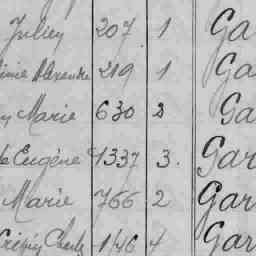 Julien 207 1 Ga
Alexandre 219 1 Ga
Marie 630 2 Ga
Eugène 1337 3. Gar
Marie 766 2 Gar
Crépin Charles 1146 4 Gar